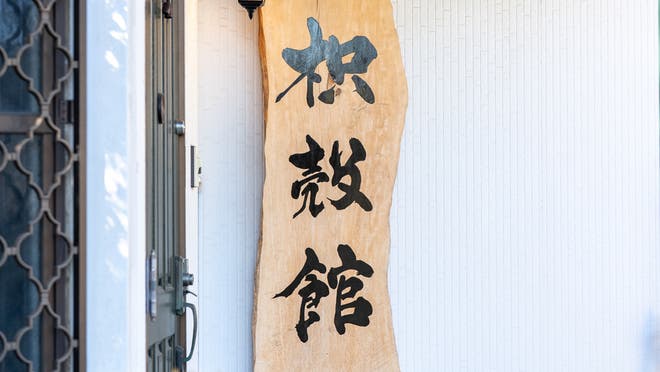 枳殻館